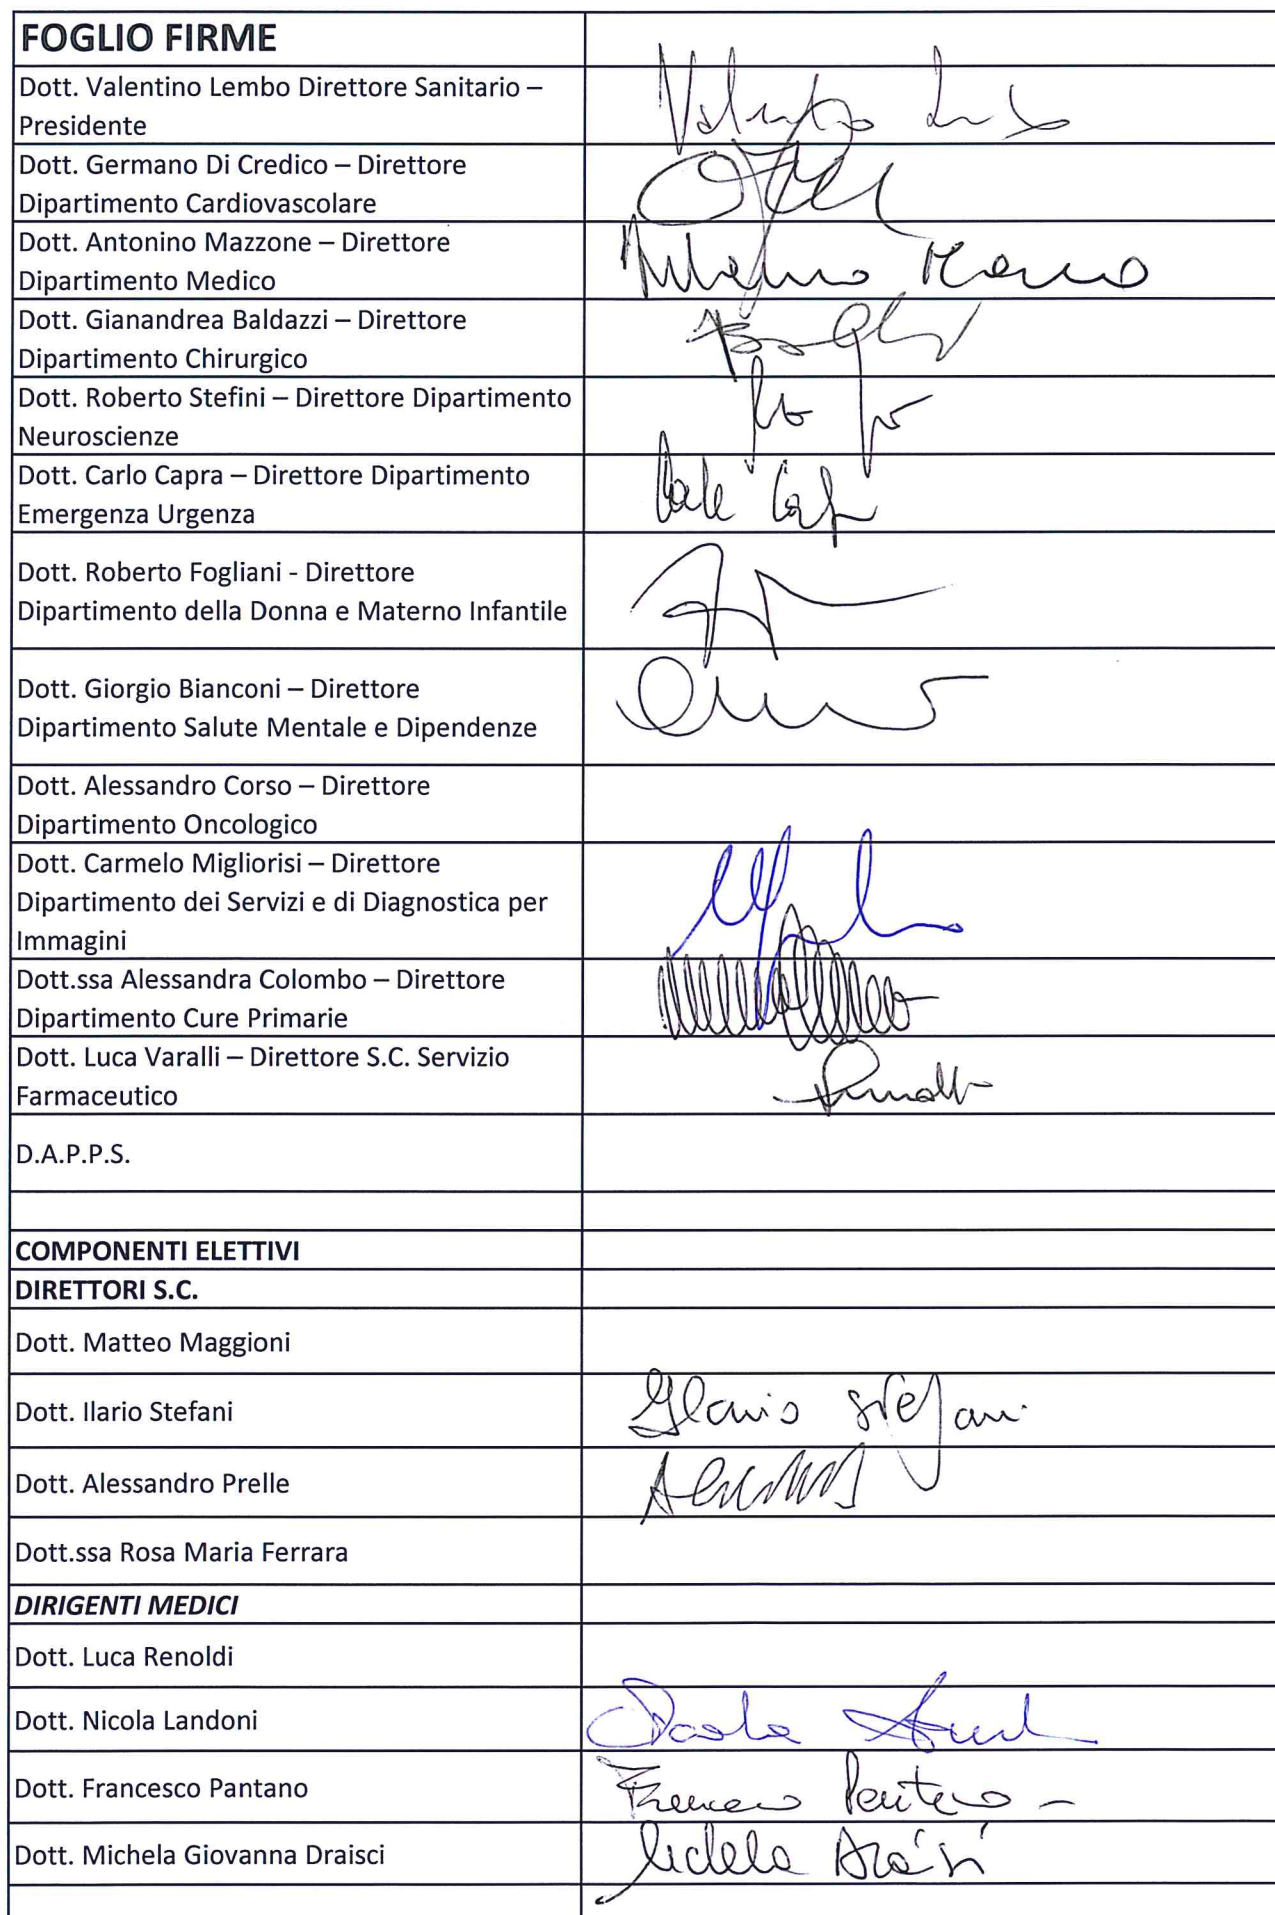 FOGLIO FIRME
Dott. Valentino Lembo Direttore Sanitario –
Presidente
Dott. Germano Di Credico – Direttore
Dipartimento Cardiovascolare
Dott. Antonino Mazzone – Direttore
Dipartimento Medico
Dott. Gianandrea Baldazzi – Direttore
Dipartimento Chirurgico
Dott. Roberto Stefini – Direttore Dipartimento
Neuroscienze
Dott. Carlo Capra – Direttore Dipartimento
Emergenza Urgenza
Dott. Roberto Fogliani - Direttore
Dipartimento della Donna e Materno Infantile
Dott. Giorgio Bianconi – Direttore
Dipartimento Salute Mentale e Dipendenze
Dott. Alessandro Corso – Direttore
Dipartimento Oncologico
Dott. Carmelo Migliorisi – Direttore
Dipartimento dei Servizi e di Diagnostica per
Immagini
Dott.ssa Alessandra Colombo – Direttore
Dipartimento Cure Primarie
Dott. Luca Varalli – Direttore S.C. Servizio
Farmaceutico
D.A.P.P.S.
COMPONENTI ELETTIVI
DIRETTORI S.C.
Dott. Matteo Maggioni
Dott. Ilario Stefani
Ilario Stefani
Dott. Alessandro Prelle
Dott.ssa Rosa Maria Ferrara
DIRIGENTI MEDICI
Dott. Luca Renoldi
Dott. Nicola Landoni
Dott. Francesco Pantano
Francesco Pantano
Dott. Michela Giovanna Draisci
Michela Draisci